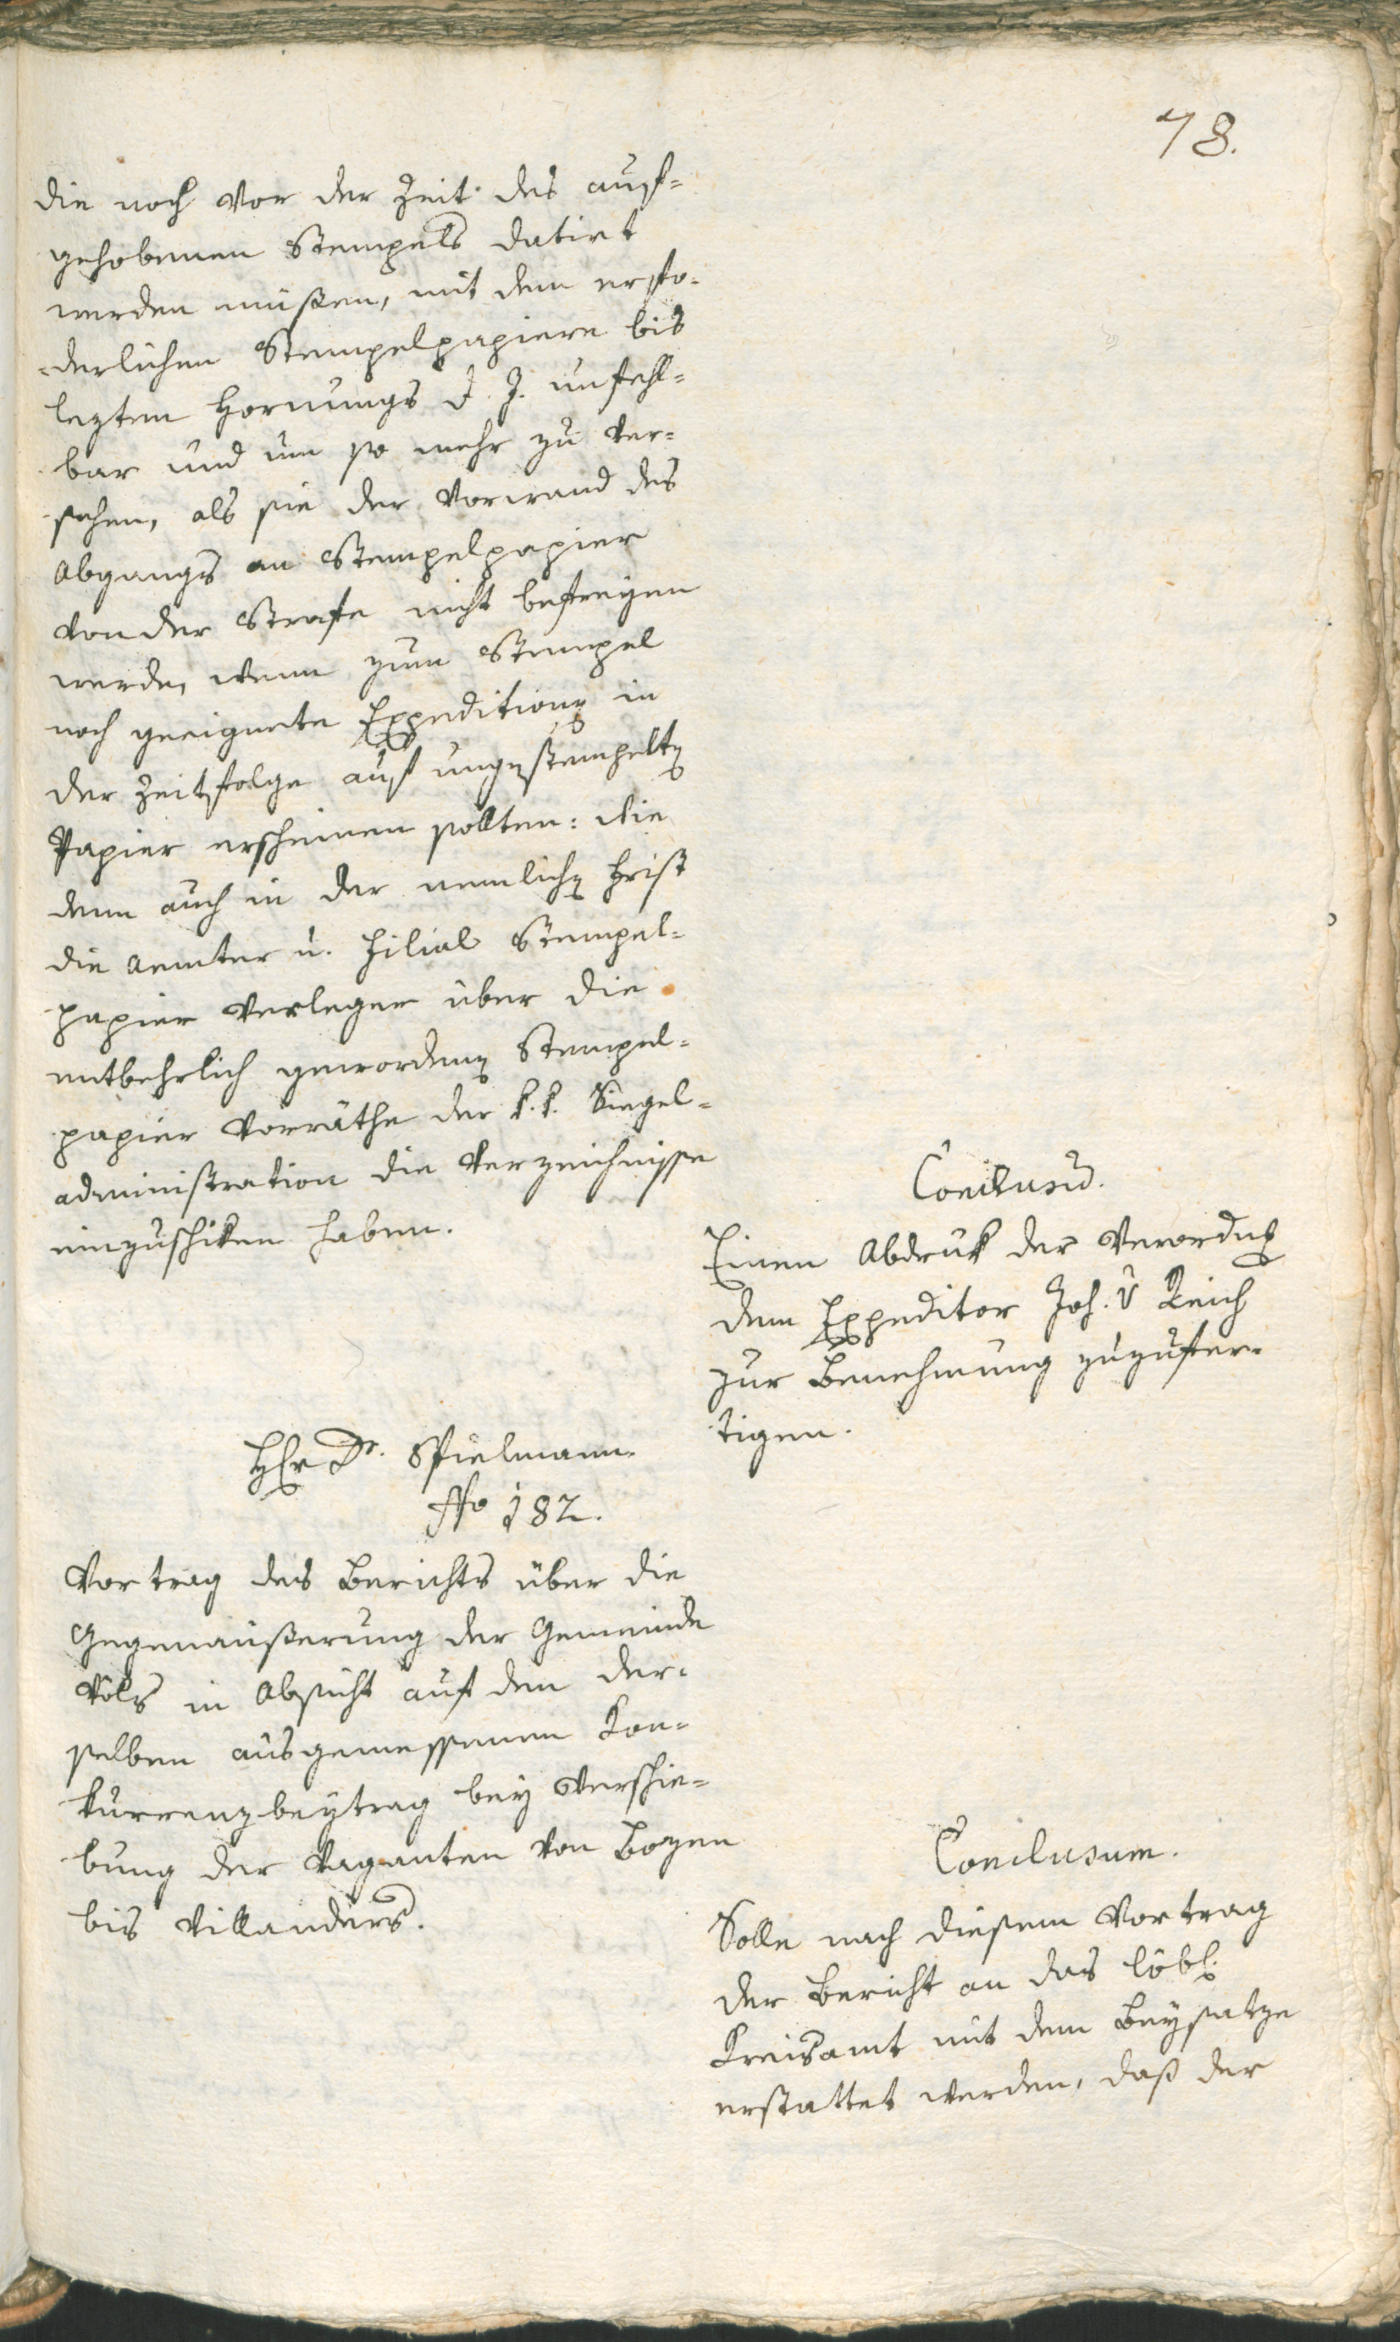 78.
die noch vor der Zeit des auf-
gehobenen Stempels datirt
werden müßen, mit dem erfo-
derlichen Stempelpapiere bis
leztem Hornungs d. J. unfehl-
bar und um so mehr zu ver-
sehen, als sie der Vorwand des
Abgangs an Stempelpapier
von der Strafe nicht befreyen
werde, wenn zum Stempel
noch geeignete Expeditionen in
der Zeitfolge auf ungestempelten
Papier erscheinen sollten: die
denn auch in der nemlichen Frist
die Aemter u. Filial Stempel-
papier Verleger über die
entbehrlich gewordenen Stempel-
papier Vorräthe der k. k. Siegel-
administration die Verzeichnisse
einzuschiken haben.
Conclusū.
Einen Abdruk der Verordng
dem Expeditor Joh. v Reich
zur Benehmung zuzufer-
tigen.
Hr Dr. Spielmann.
No 182.
Vortrag des Berichts über die
Gegenäußerung der Gemeinde
Völs in Absicht auf den der-
selben ausgemessenen Kon-
kurrenzbeytrag bey Verschie-
bung der Vaganten von Bozen
bis Villanders.
Conclusum.
Solle nach diesem Vortrag
der Bericht an das löbl.
Kreisamt mit dem Beysatze
erstattet werden, daß der